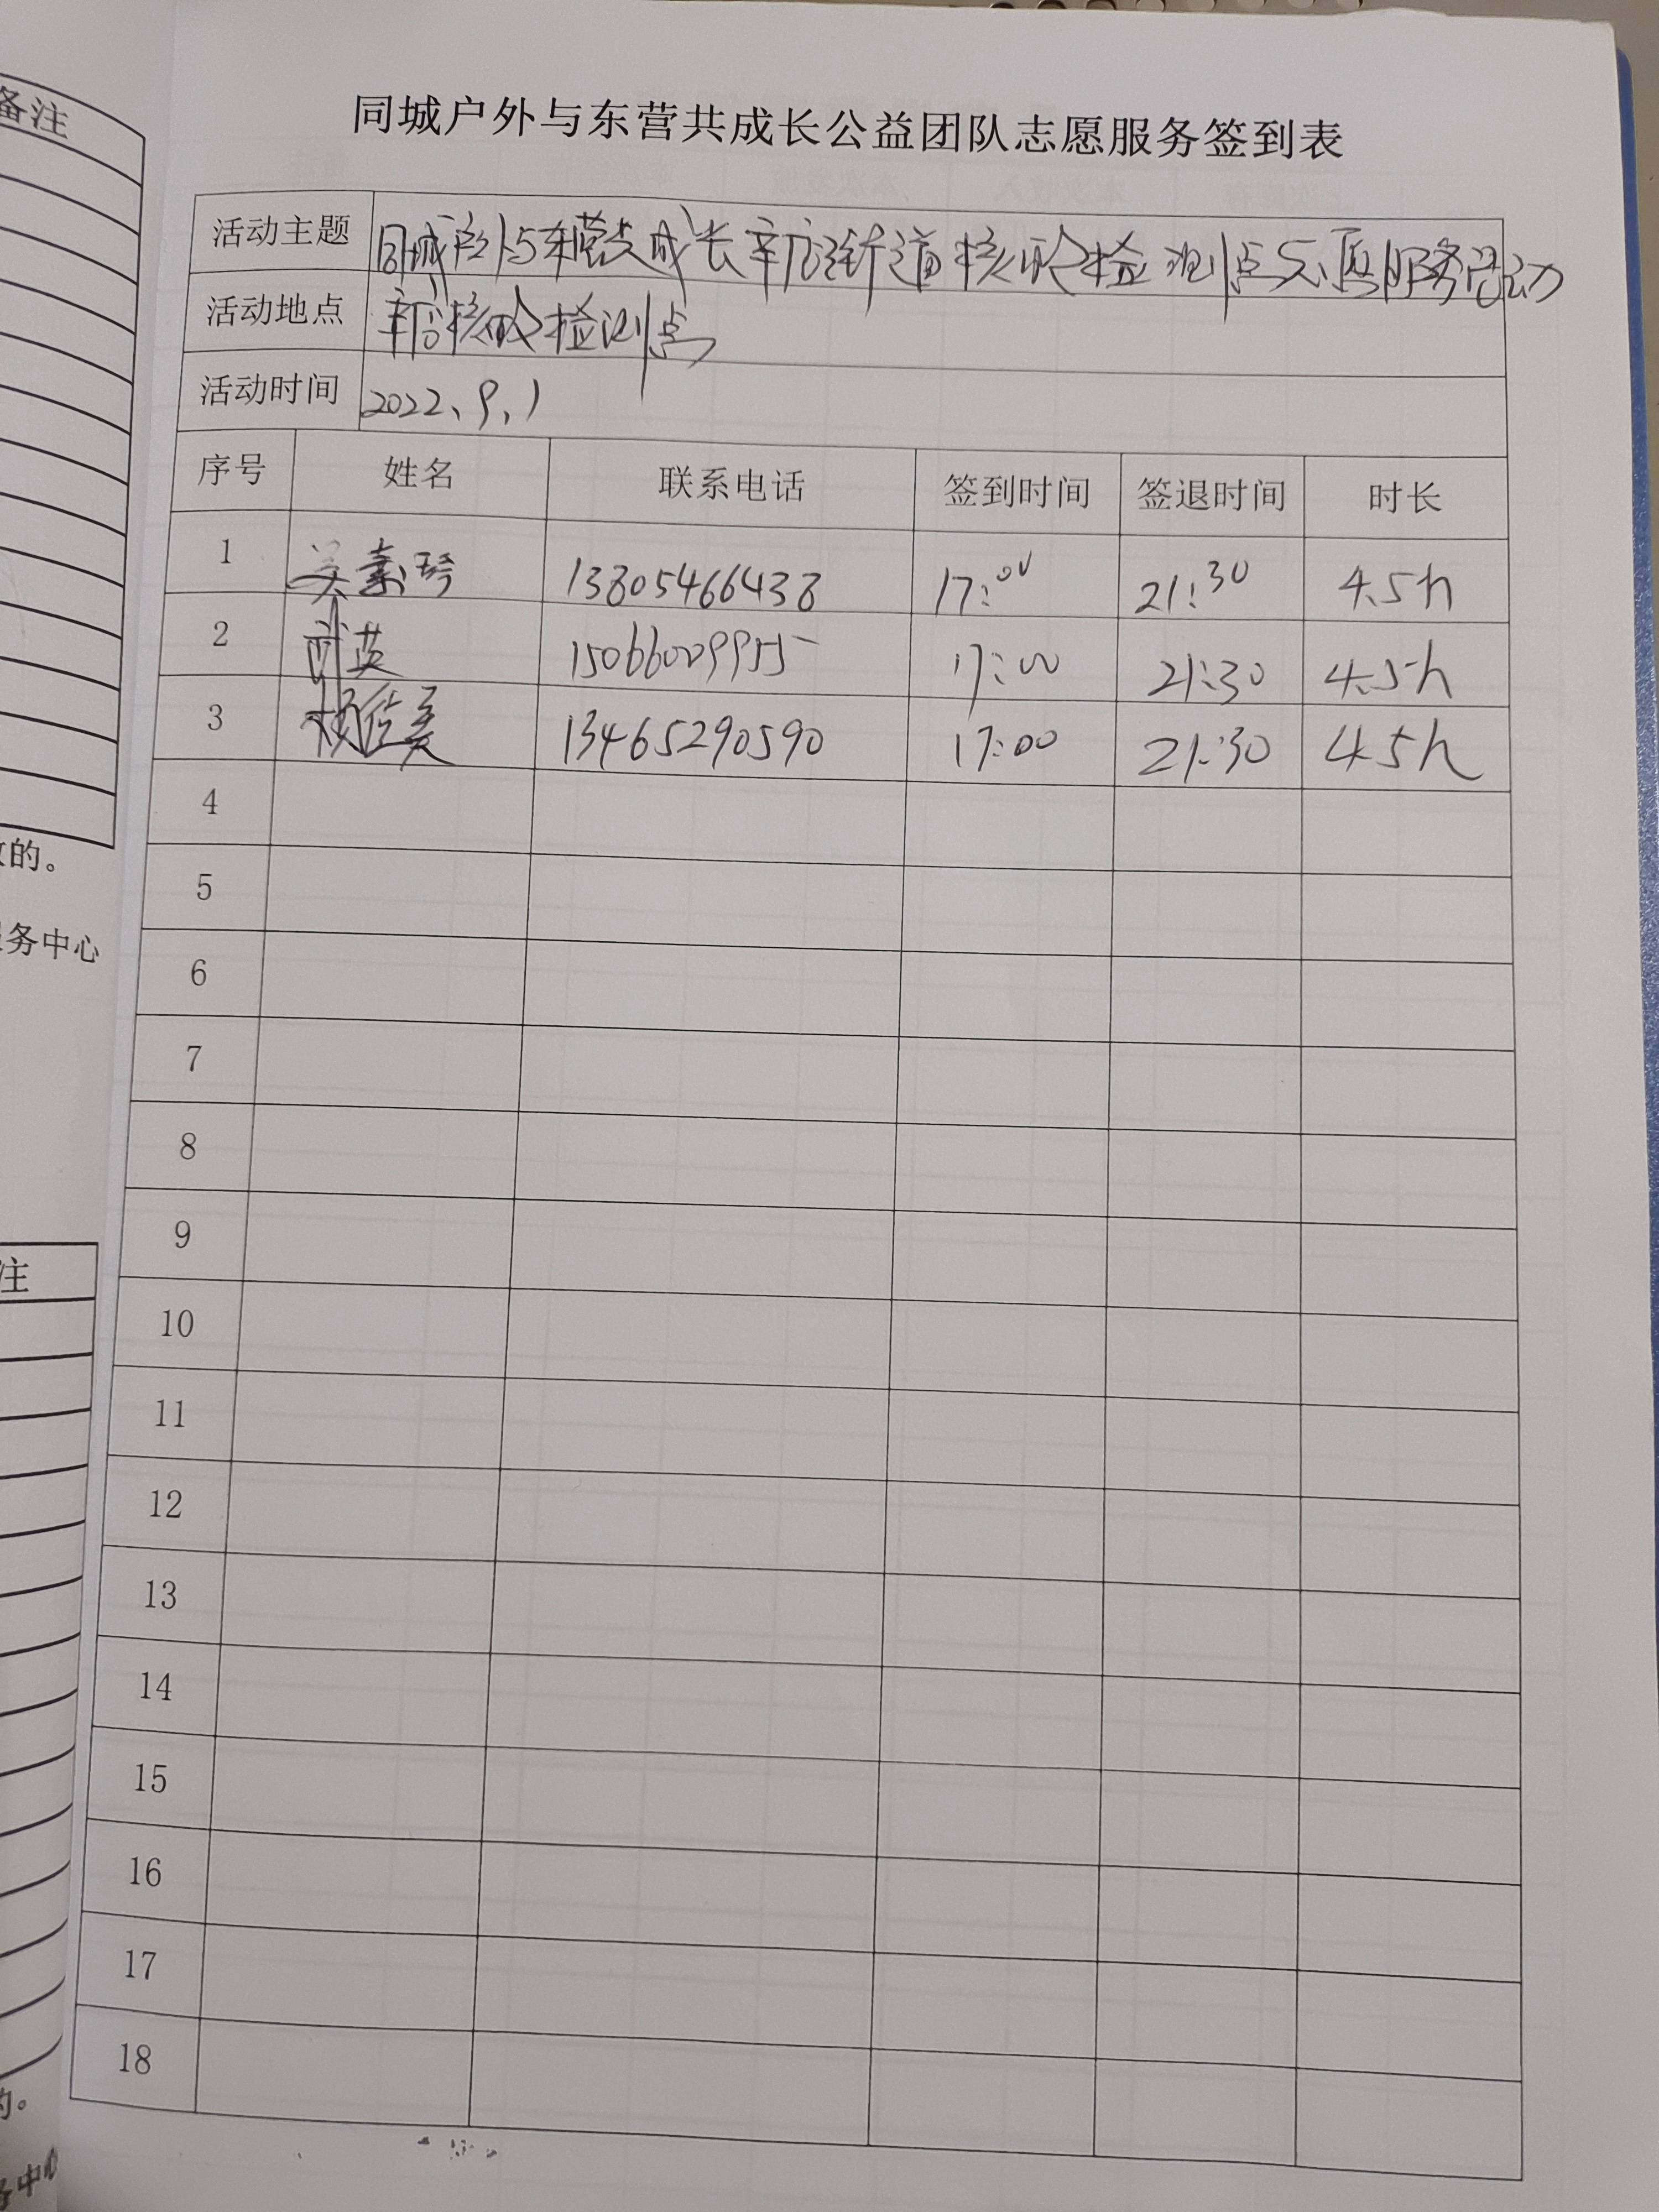 备注
同城户外与东营共成长公益团队志愿服务签到表
活动主题 同城户外与东营共成长辛店街道核酸检测点志愿服务活动
活动地点 辛店核酸检测点
活动时间 2022、9、1
序号 姓名 联系电话 签到时间 签退时间 时长
1 吴素琴 13805466438 17:00 21:30 4.5h
2 15066009955 17:00 21:30 4.5h
3 杨俊美 13465290590 17:00 21:30 4.5h
4
的。
5
服务中心
6
7
8
9
注
10
11
12
13
14
15
16
17
18
的。
务中心